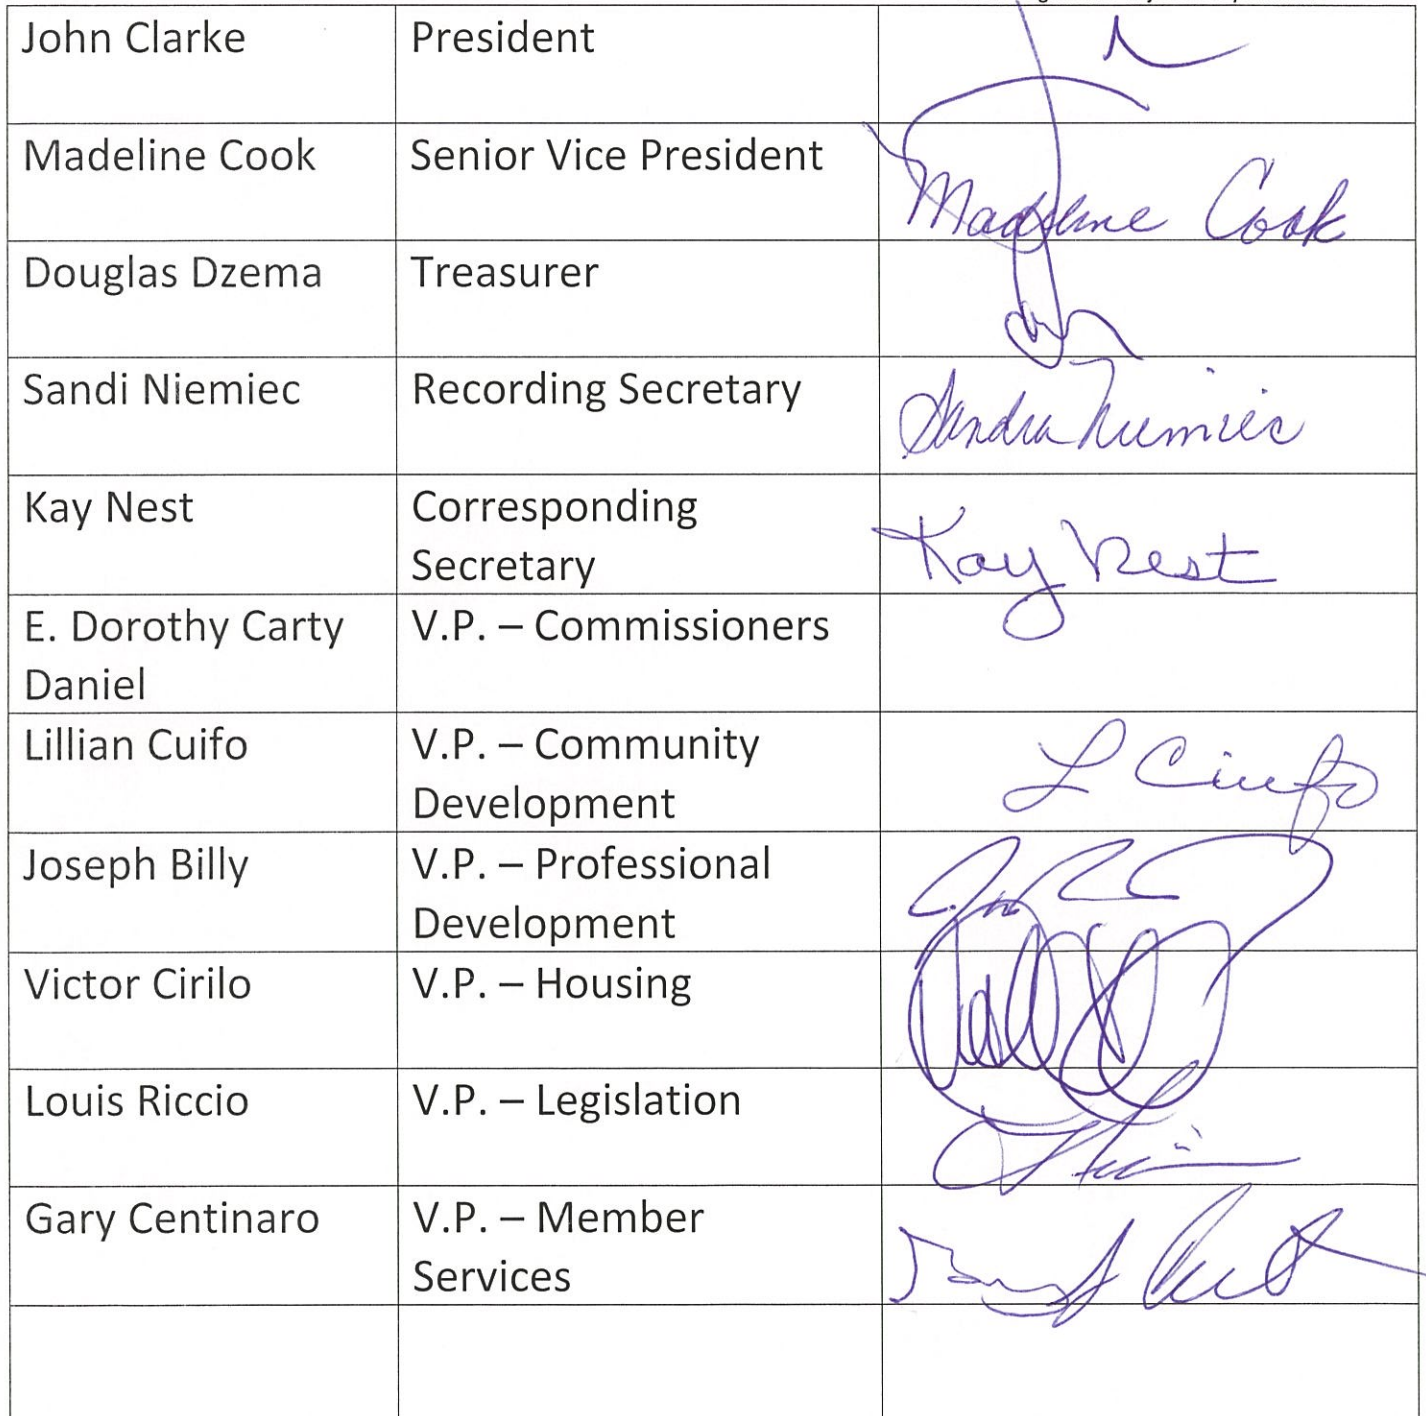 John Clarke
President
Madeline Cook
Senior Vice President
Madeline Cook
Douglas Dzema
Treasurer
Sandi Niemiec
Recording Secretary
Sandra Niemiec
Kay Nest
Corresponding
Secretary
Kay Nest
E. Dorothy Carty
Daniel
V.P. – Commissioners
Lillian Cuifo
V.P. – Community
Development
L Ciufo
Joseph Billy
V.P. – Professional
Development
Victor Cirilo
V.P. – Housing
Louis Riccio
V.P. – Legislation
Gary Centinaro
V.P. – Member
Services